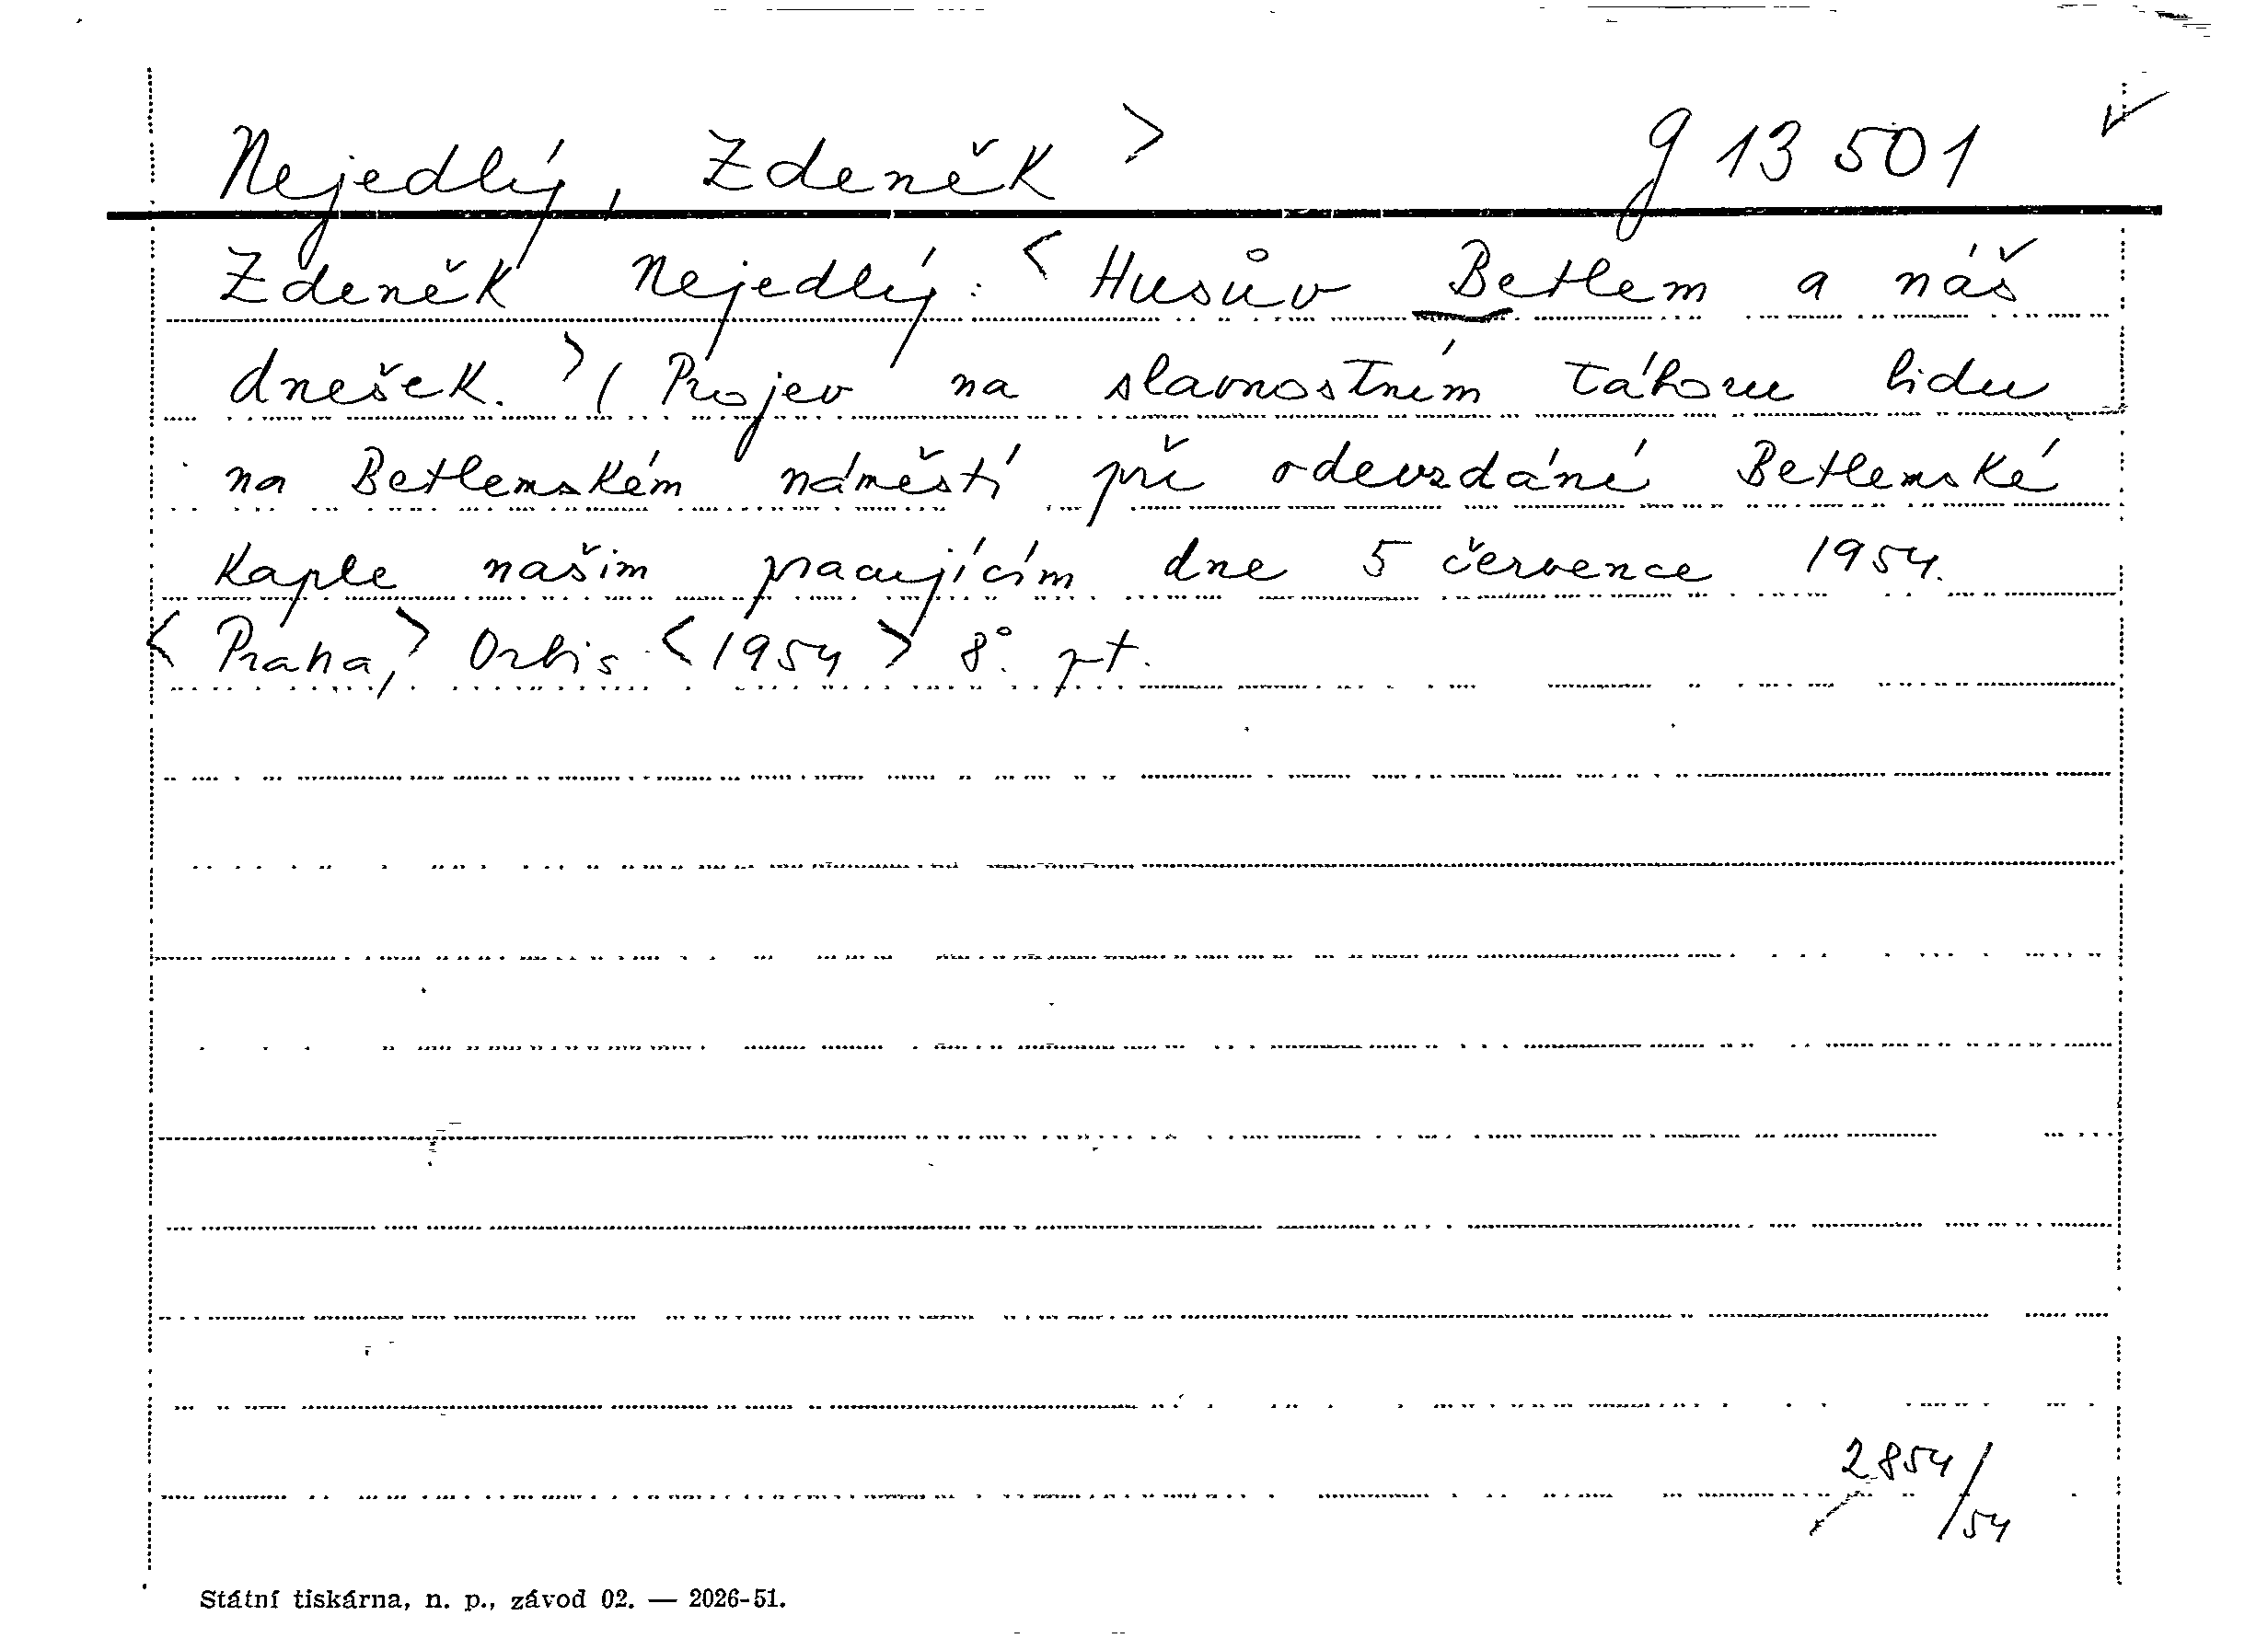 Nejedlý, Zdeněk > g 13 501 ✓
Zdeněk Nejedlý: < Husův Betlem a náš
dnešek. > ( Projev na slavnostním táboru lidu
na Betlemském náměstí při odevzdání Betlemské
kaple našim pracujícím dne 5 července 1954.
< Praha, > Orbis < 1954 > 8°. pt.
2854/54
Státní tiskárna, n. p., závod 02. — 2026-51.